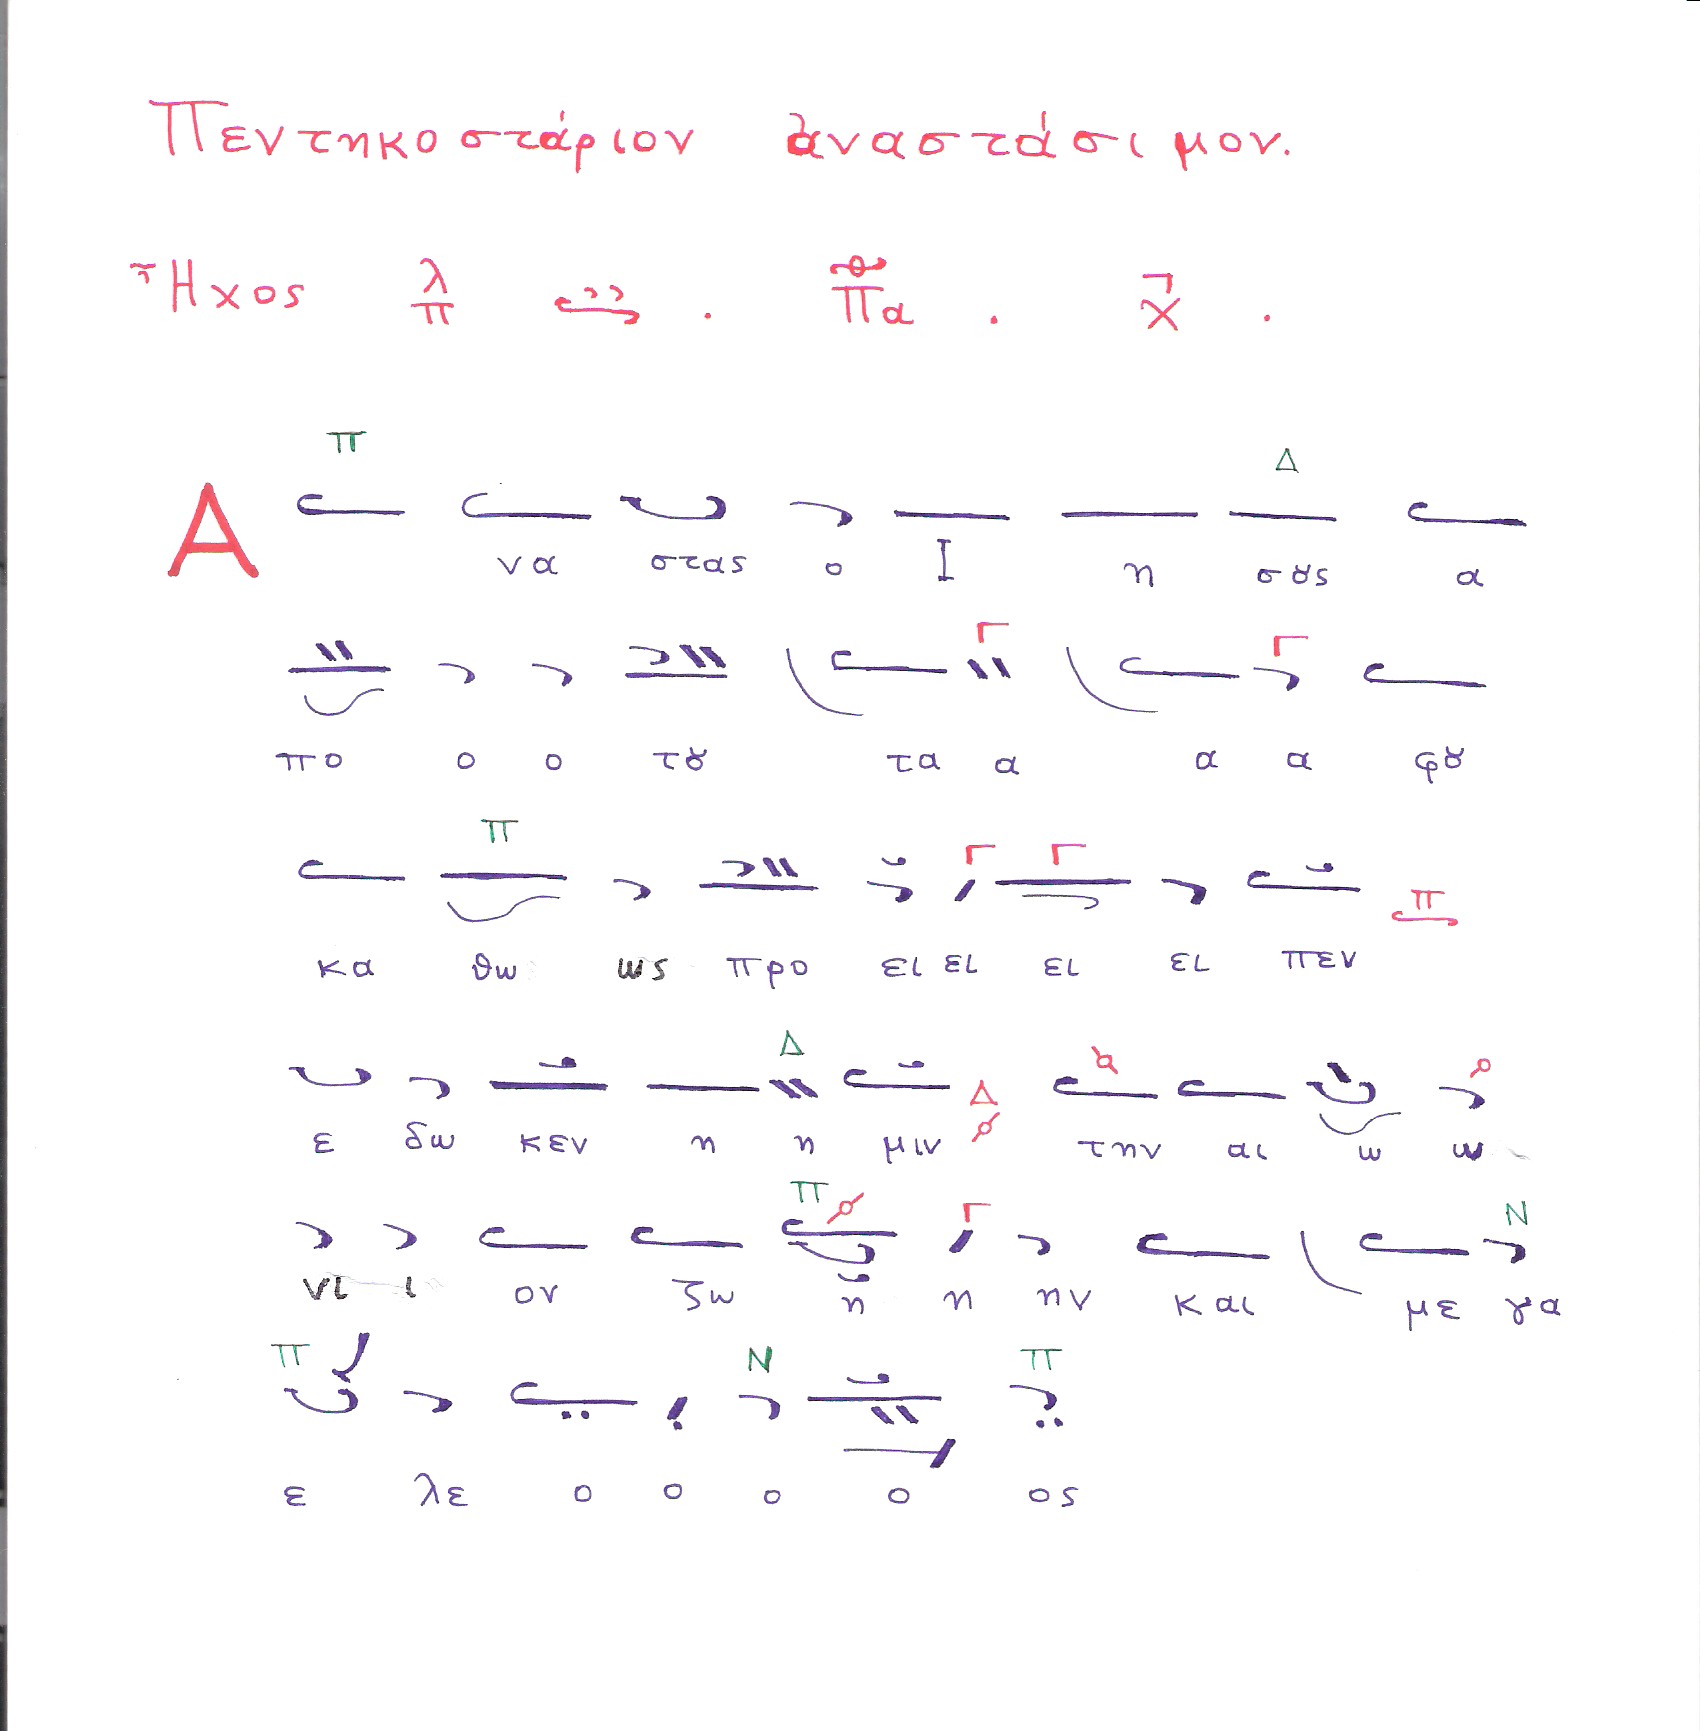 Πεντηκοστάριον ἀναστάσιμον.
Ἦχος λ π . Πα . χ .
Π Δ
Α να στας ο Ι η σȣς α
Γ Γ
πο ο ο τȣ τα α α α φȣ
Π Γ Γ Π
κα θω ως προ ει ει ει ει πεν
Δ Δ
ε δω κεν η η μιν την αι ω ω
Π Γ Ν
νι ι ον ζω η η ην και με γα
Π Ν Π
ε λε ο ο ο ο ος